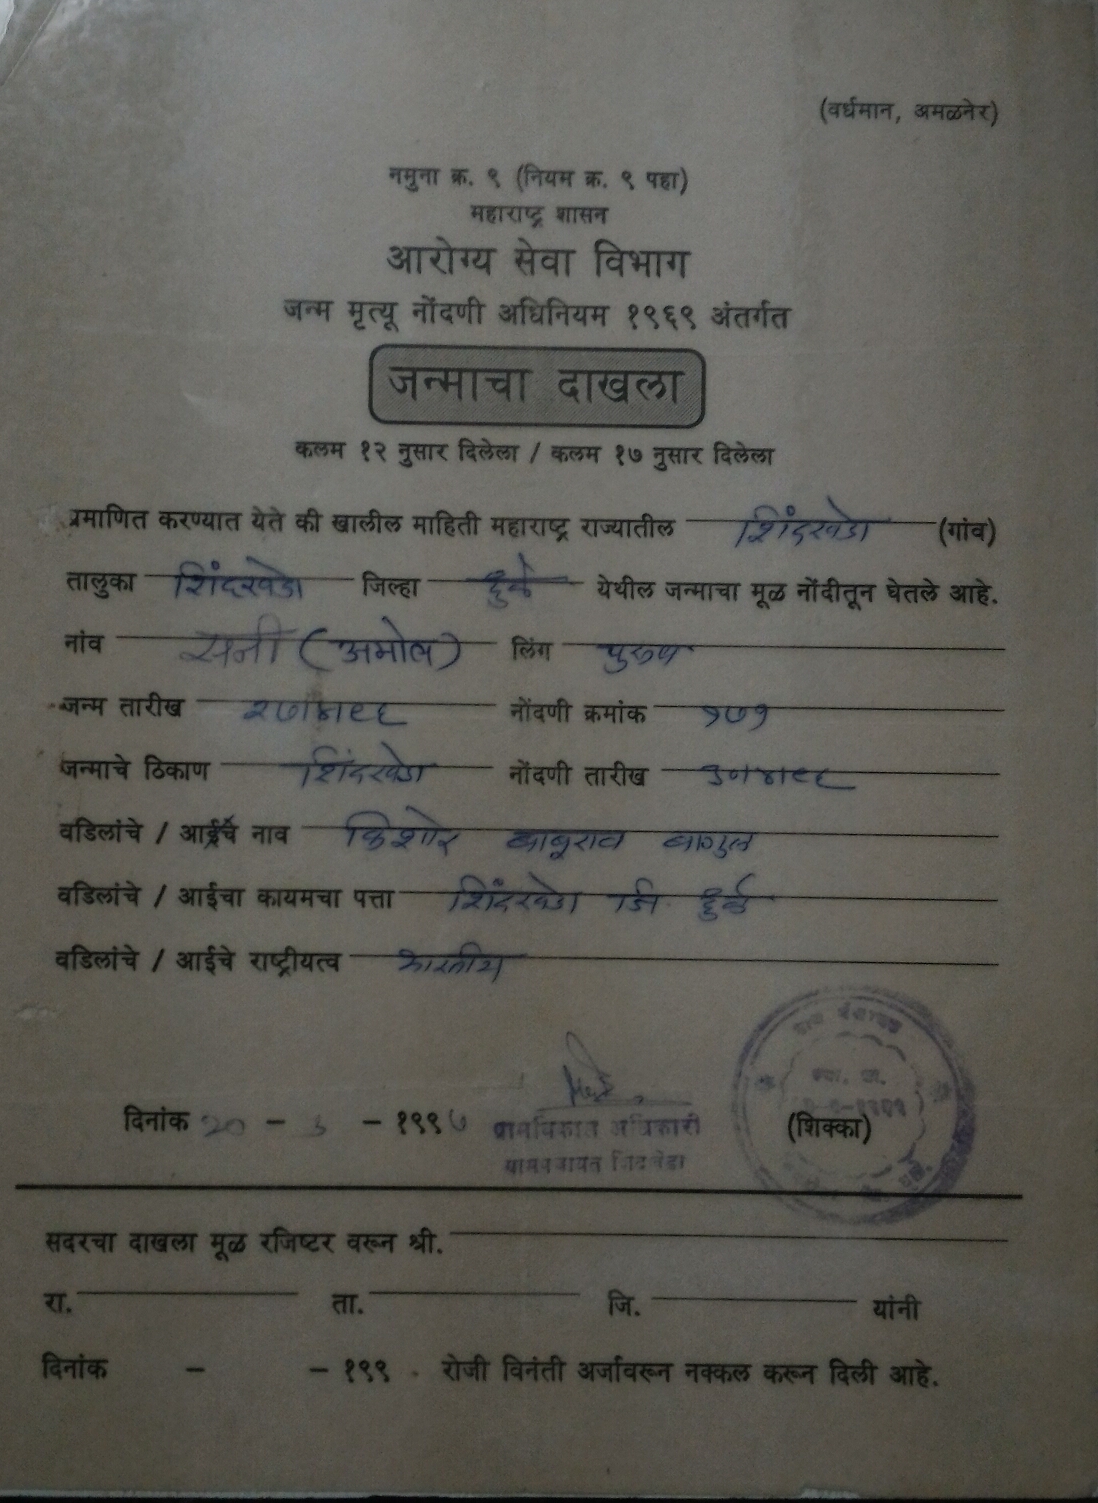 (वर्धमान, अमळनेर)
नमुना क्र. ९ (नियम क्र. ९ पहा)
महाराष्ट्र शासन
आरोग्य सेवा विभाग
जन्म मृत्यू नोंदणी अधिनियम १९६९ अंतर्गत
जन्माचा दाखला
कलम १२ नुसार दिलेला / कलम १७ नुसार दिलेला
प्रमाणित करण्यात येते की खालील माहिती महाराष्ट्र राज्यातील शिंदखेडा (गांव)
तालुका शिंदखेडा जिल्हा धुळे येथील जन्माचा मूळ नोंदीतून घेतले आहे.
नांव सनी (अमोल) लिंग पुरुष
जन्म तारीख नोंदणी क्रमांक १७१
जन्माचे ठिकाण शिंदखेडा नोंदणी तारीख
वडिलांचे / आईचे नाव किशोर बाबूराव बागुल
वडिलांचे / आईचा कायमचा पत्ता शिंदखेडा जि. धुळे
वडिलांचे / आईचे राष्ट्रीयत्व भारतीय
दिनांक २० - ३ - १९९७ ग्रामविकास अधिकारी (शिक्का)
सदरचा दाखला मूळ रजिष्टर वरून श्री.
रा. ता. जि. यांनी
दिनांक - - १९९ रोजी विनंती अर्जावरून नक्कल करून दिली आहे.